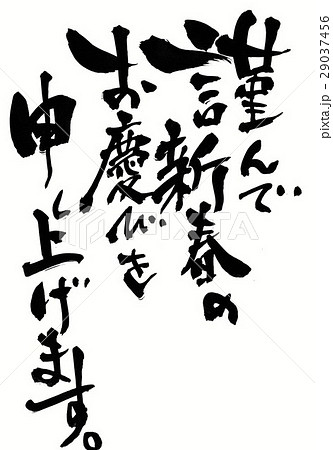 謹んで
新春の
お慶びを
申し上げます。
PIXTA
pixta.jp - 29037456